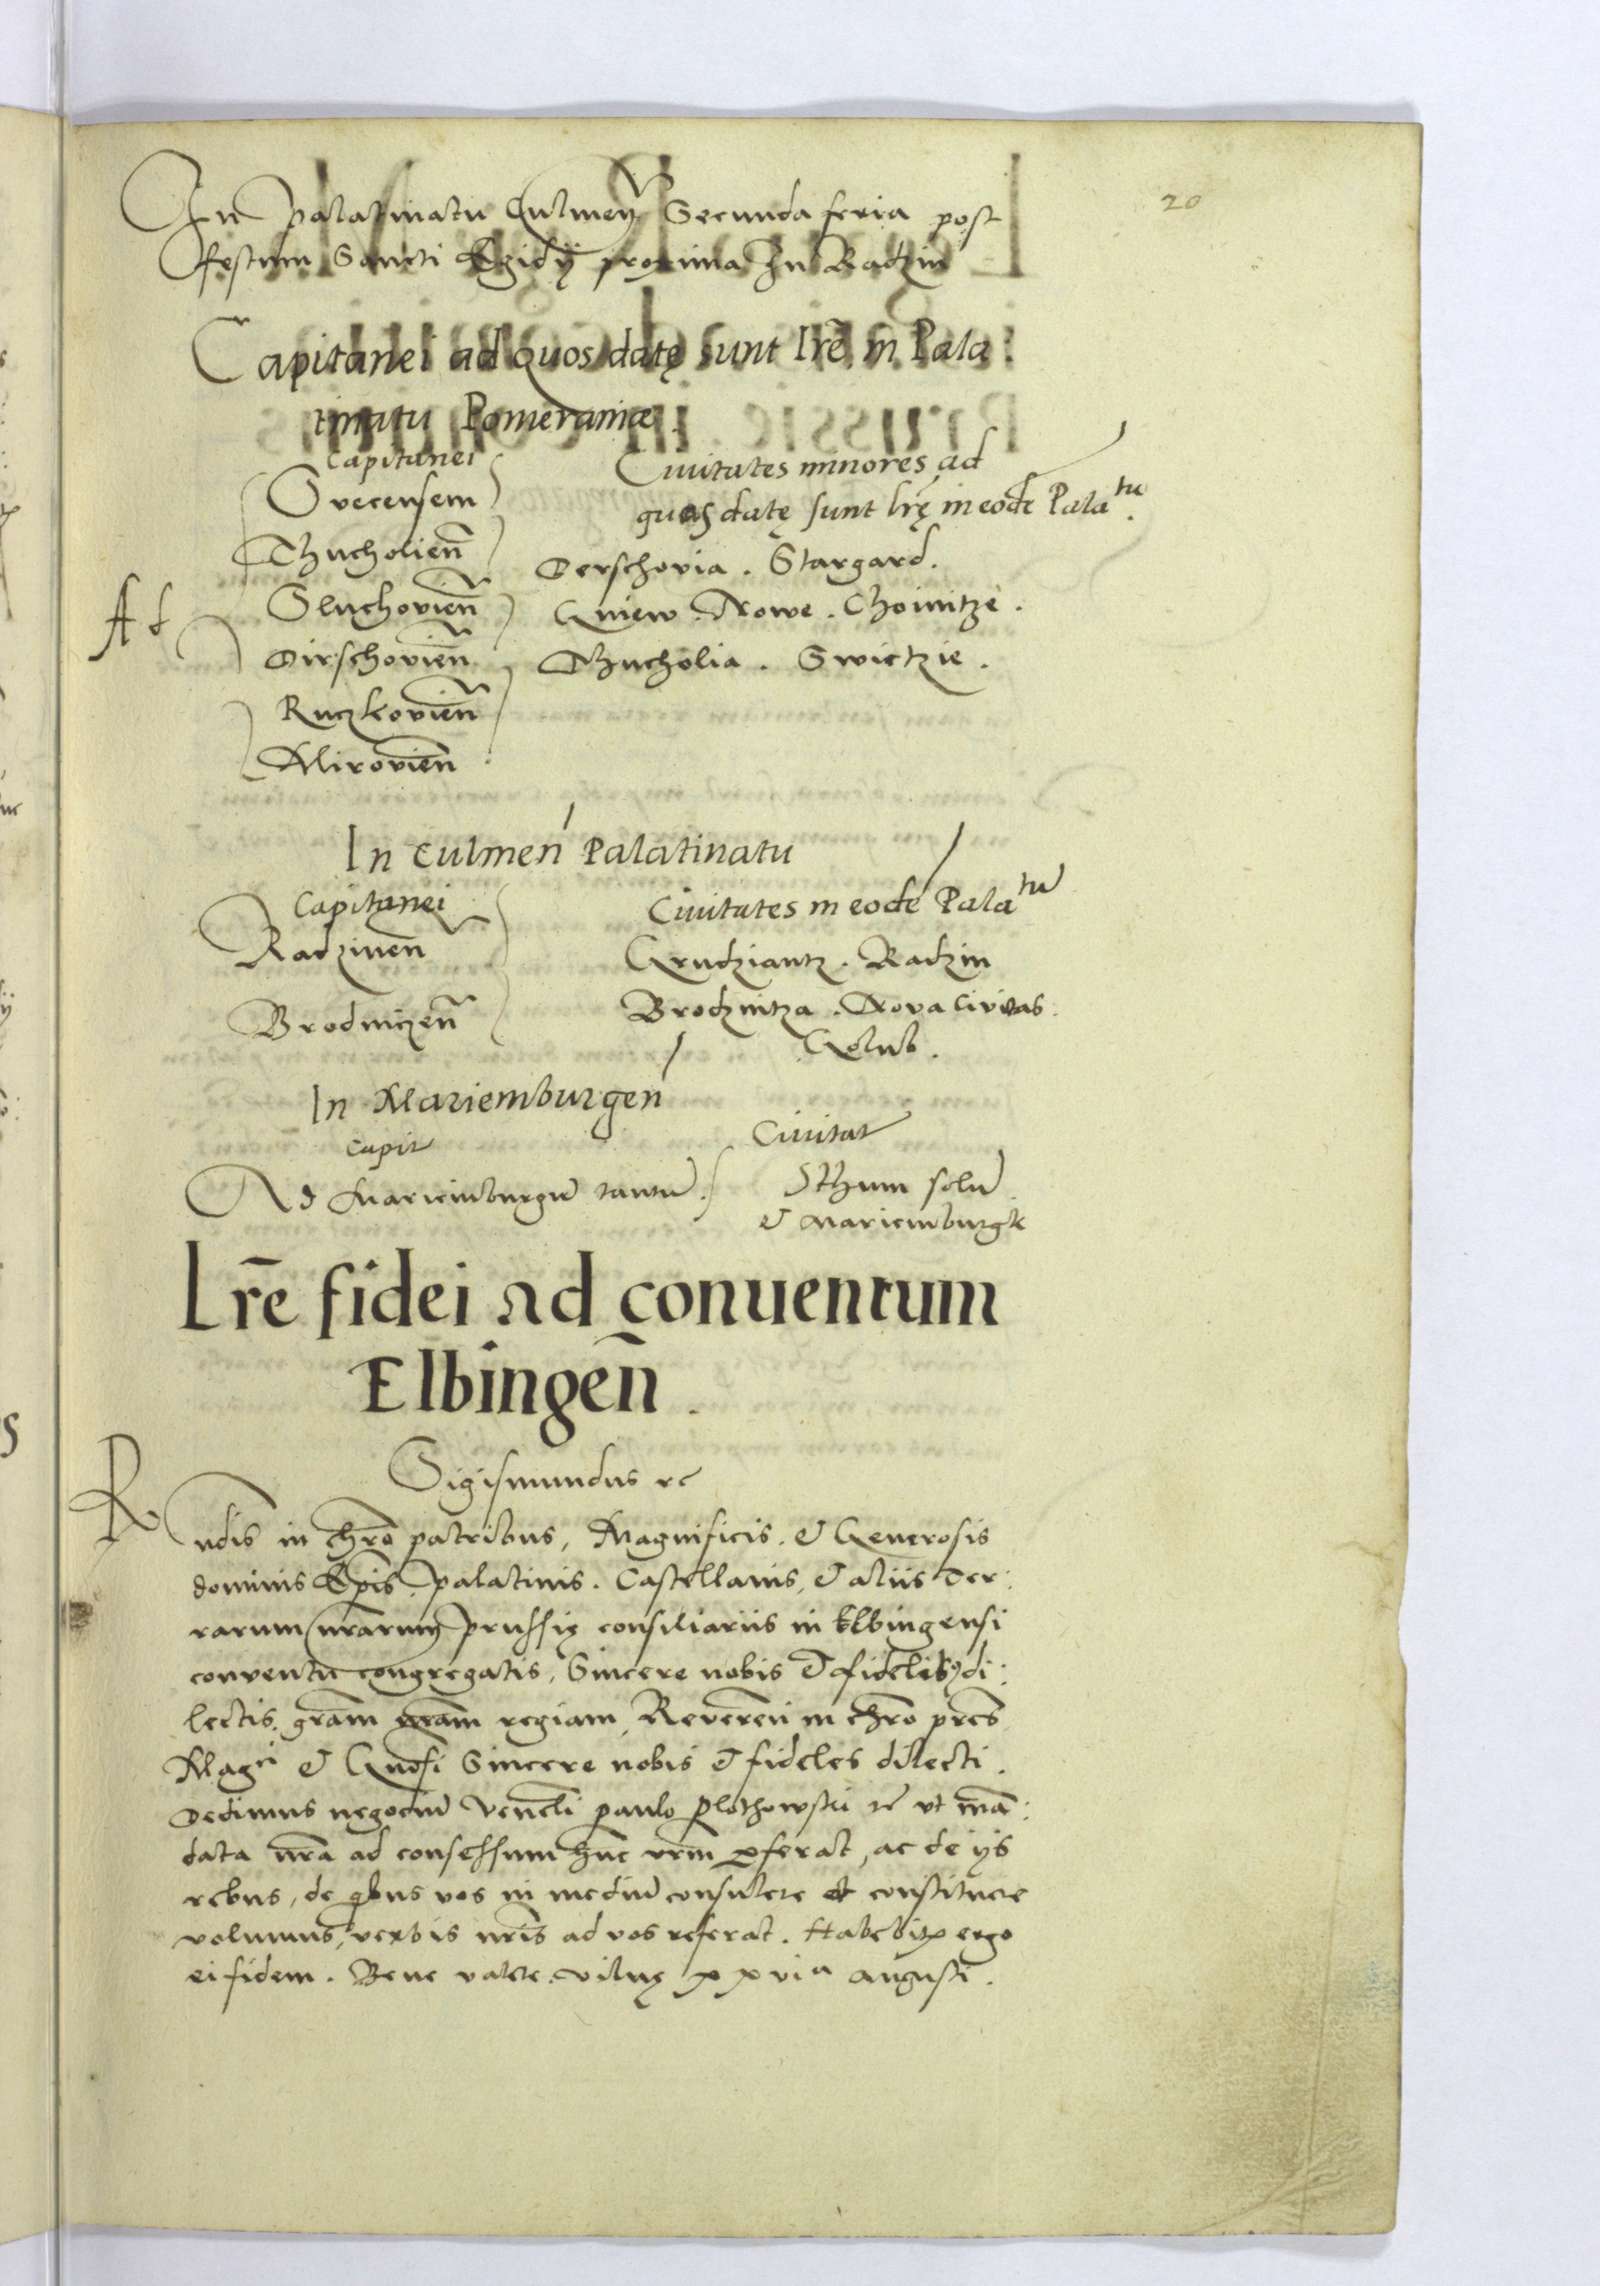 20
In palatinatu Culmeñ Secunda feria post
festum Sancti Egidij proxima In Radzin
Capitanei ad quos datę sunt lr̃e in Pala
tinatu Pomeraniæ.
Capitanei
Svecensem
Thucholieñ
Sluchovieñ
Ad
Dirschovieñ
Ruczkovieñ
Mirovieñ
Ciuitates minores ad
quas datę sunt lrę in eodẽ Palatu.
Derschovia. Stargard.
Gniew. Nowe. Choinitze.
Thucholia. Swietzie.
In Culmeñ Palatinatu
Capitanei
Radzineñ
Brodniczeñ
Ciuitates in eodẽ Palatu
Grudziantz. Radzin
Brodznitza. Nova Civitas.
Golub.
In Mariemburgeñ
Capit
Ad Mariemburgũ tantũ.
Ciuitat
Sthum solũ
& Mariemburgk
Lr̃e fidei ad conuentum
Elbingeñ.
Sigismundus rc
Rndis in chr̃o patribus, Magnificis. & Generosis
dominis Ep̃is. palatinis. Castellanis, & aliis Ter:
rarum nr̃arum prussię consiliariis in Elbingensi
conventu congregatis, Sincere nobis & fidelib9 di:
lectis. gr̃am nr̃am regiam Reverẽn in chr̃o pr̃es
Magci & Gnõsi Sincere nobis & fideles dilecti.
Dedimus negociũ Veñeli paulo Plothowski rc̃ ut mã:
data nr̃a ad consessum hũc vr̃m pferat, ac de ijs
rebus, de qbus vos in mediũ consulere et constituere
volumus, verbis nr̃is ad vos referat. Habebitis ergo
ei fidem. Bene valete. Vilnę xxvia Augusti.